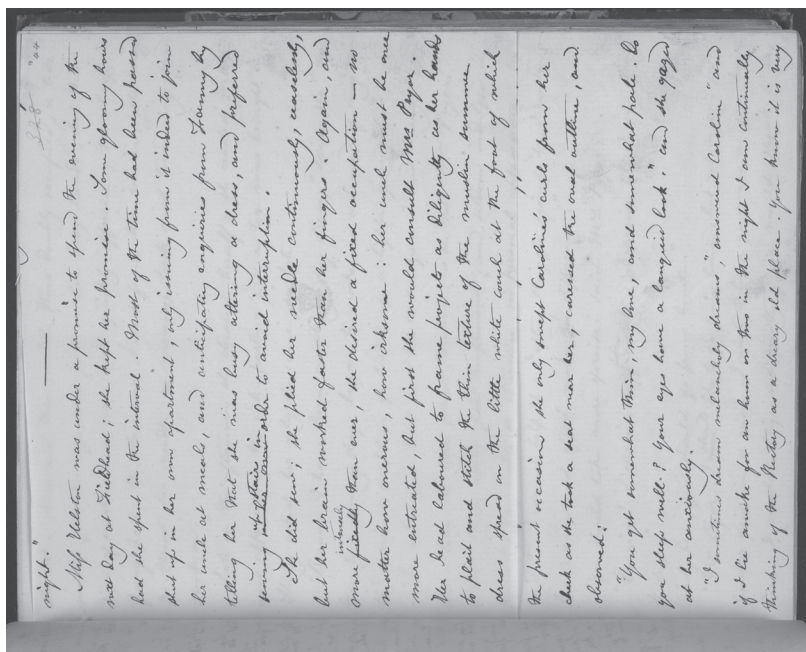 night."
Miss Helstone was under a promise to spend the evening of the
next day at Fieldhead; she kept her promise. Some gloomy hours
had she spent in the interval. Most of the time had been passed
shut up in her own apartment, only issuing from it indeed to join
her uncle at meals, and anticipating enquiries from Fanny by
telling her that she was busy altering a dress, and preferred
sewing up-stairs in order to avoid interruption.
She did sew; she plied her needle continuously, ceaselessly,
but her brain worked faster than her fingers. Again and
more fixedly intensely than ever, she desired a fixed occupation — no
matter how onerous, how irksome: her uncle must be once
more entreated, but first she would consult Mrs Pryor.
Her head laboured to frame projects as diligently as her hands
to plait and stitch the thin texture of the muslin summer
dress spread on the little white couch at the foot of which
the present occasion she only swept Caroline's curls from her
cheek as she took a seat near her, caressed the oval outline, and
observed:
"You get somewhat thin, my love, and somewhat pale. Do
you sleep well? Your eyes have a languid look." and she gazed
at her anxiously.
"I sometimes dream melancholy dreams," answered Caroline "and
if I lie awake for an hour or two in the night I am continually
thinking of the Rectory as a dreary old place. You know it is very